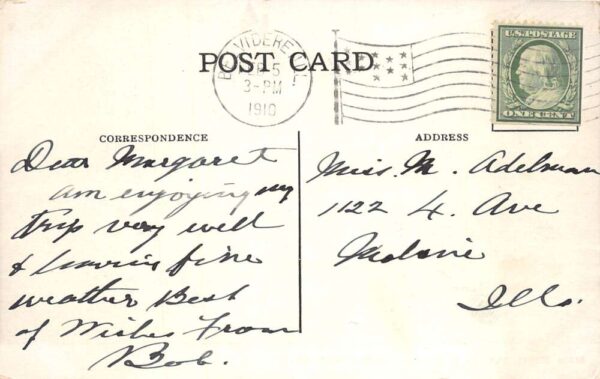 POST CARD
BELVIDERE ILL
5
3-PM
1910
U.S. POSTAGE
ONE CENT
CORRESPONDENCE
ADDRESS
Dear Margaret
am enjoying my
trip very well
& having fine
weather Best
of Wishes From
Bob.
Miss. M. Adelman
1122 4. Ave
Moline
Ills.